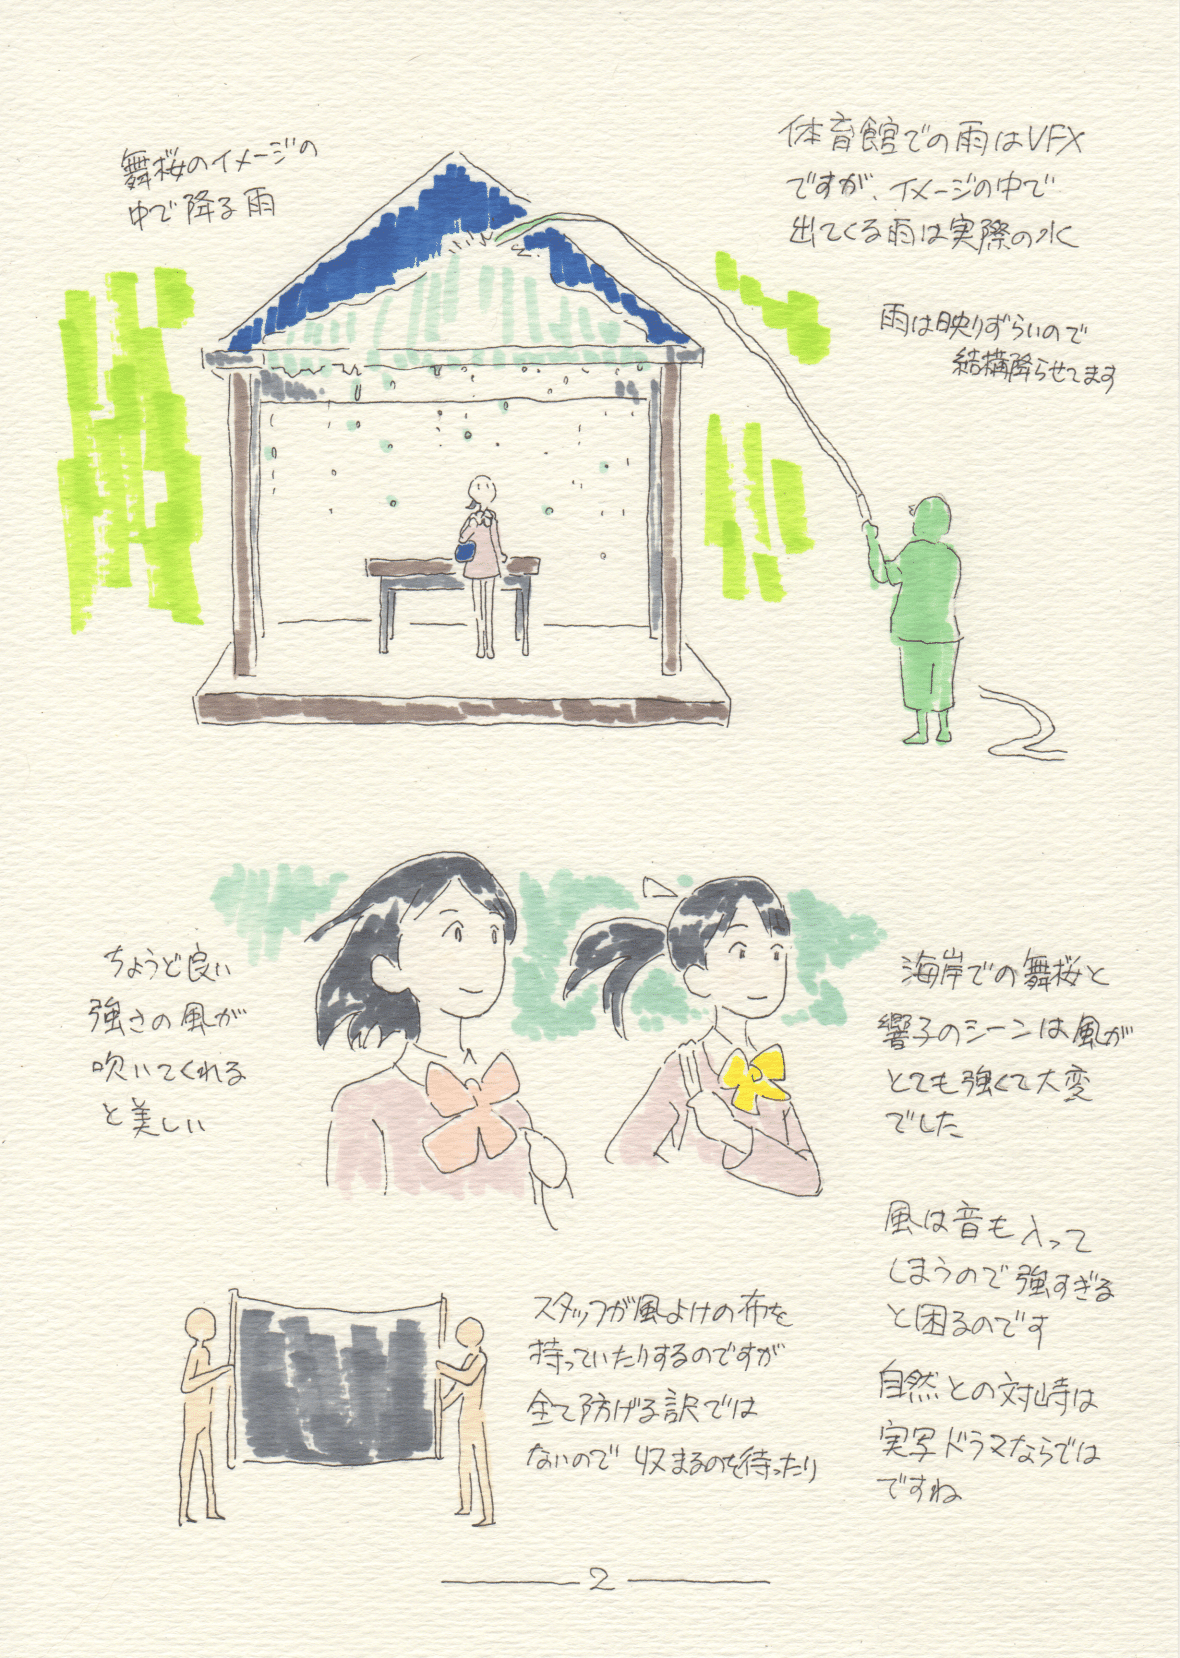 舞桜のイメージの
中で降る雨
体育館での雨はVFX
ですが、イメージの中で
出てくる雨は実際の水
雨は映りずらいので
結構降らせてます
ちょうど良い
強さの風が
吹いてくれる
と美しい
海岸での舞桜と
響子のシーンは風が
とても強くて大変
でした
風は音も入って
しまうので強すぎる
と困るのです
スタッフが風よけの布を
持っていたりするのですが
全て防げる訳では
ないので収まるのを待ったり
自然との対峙は
実写ドラマならでは
ですね
2